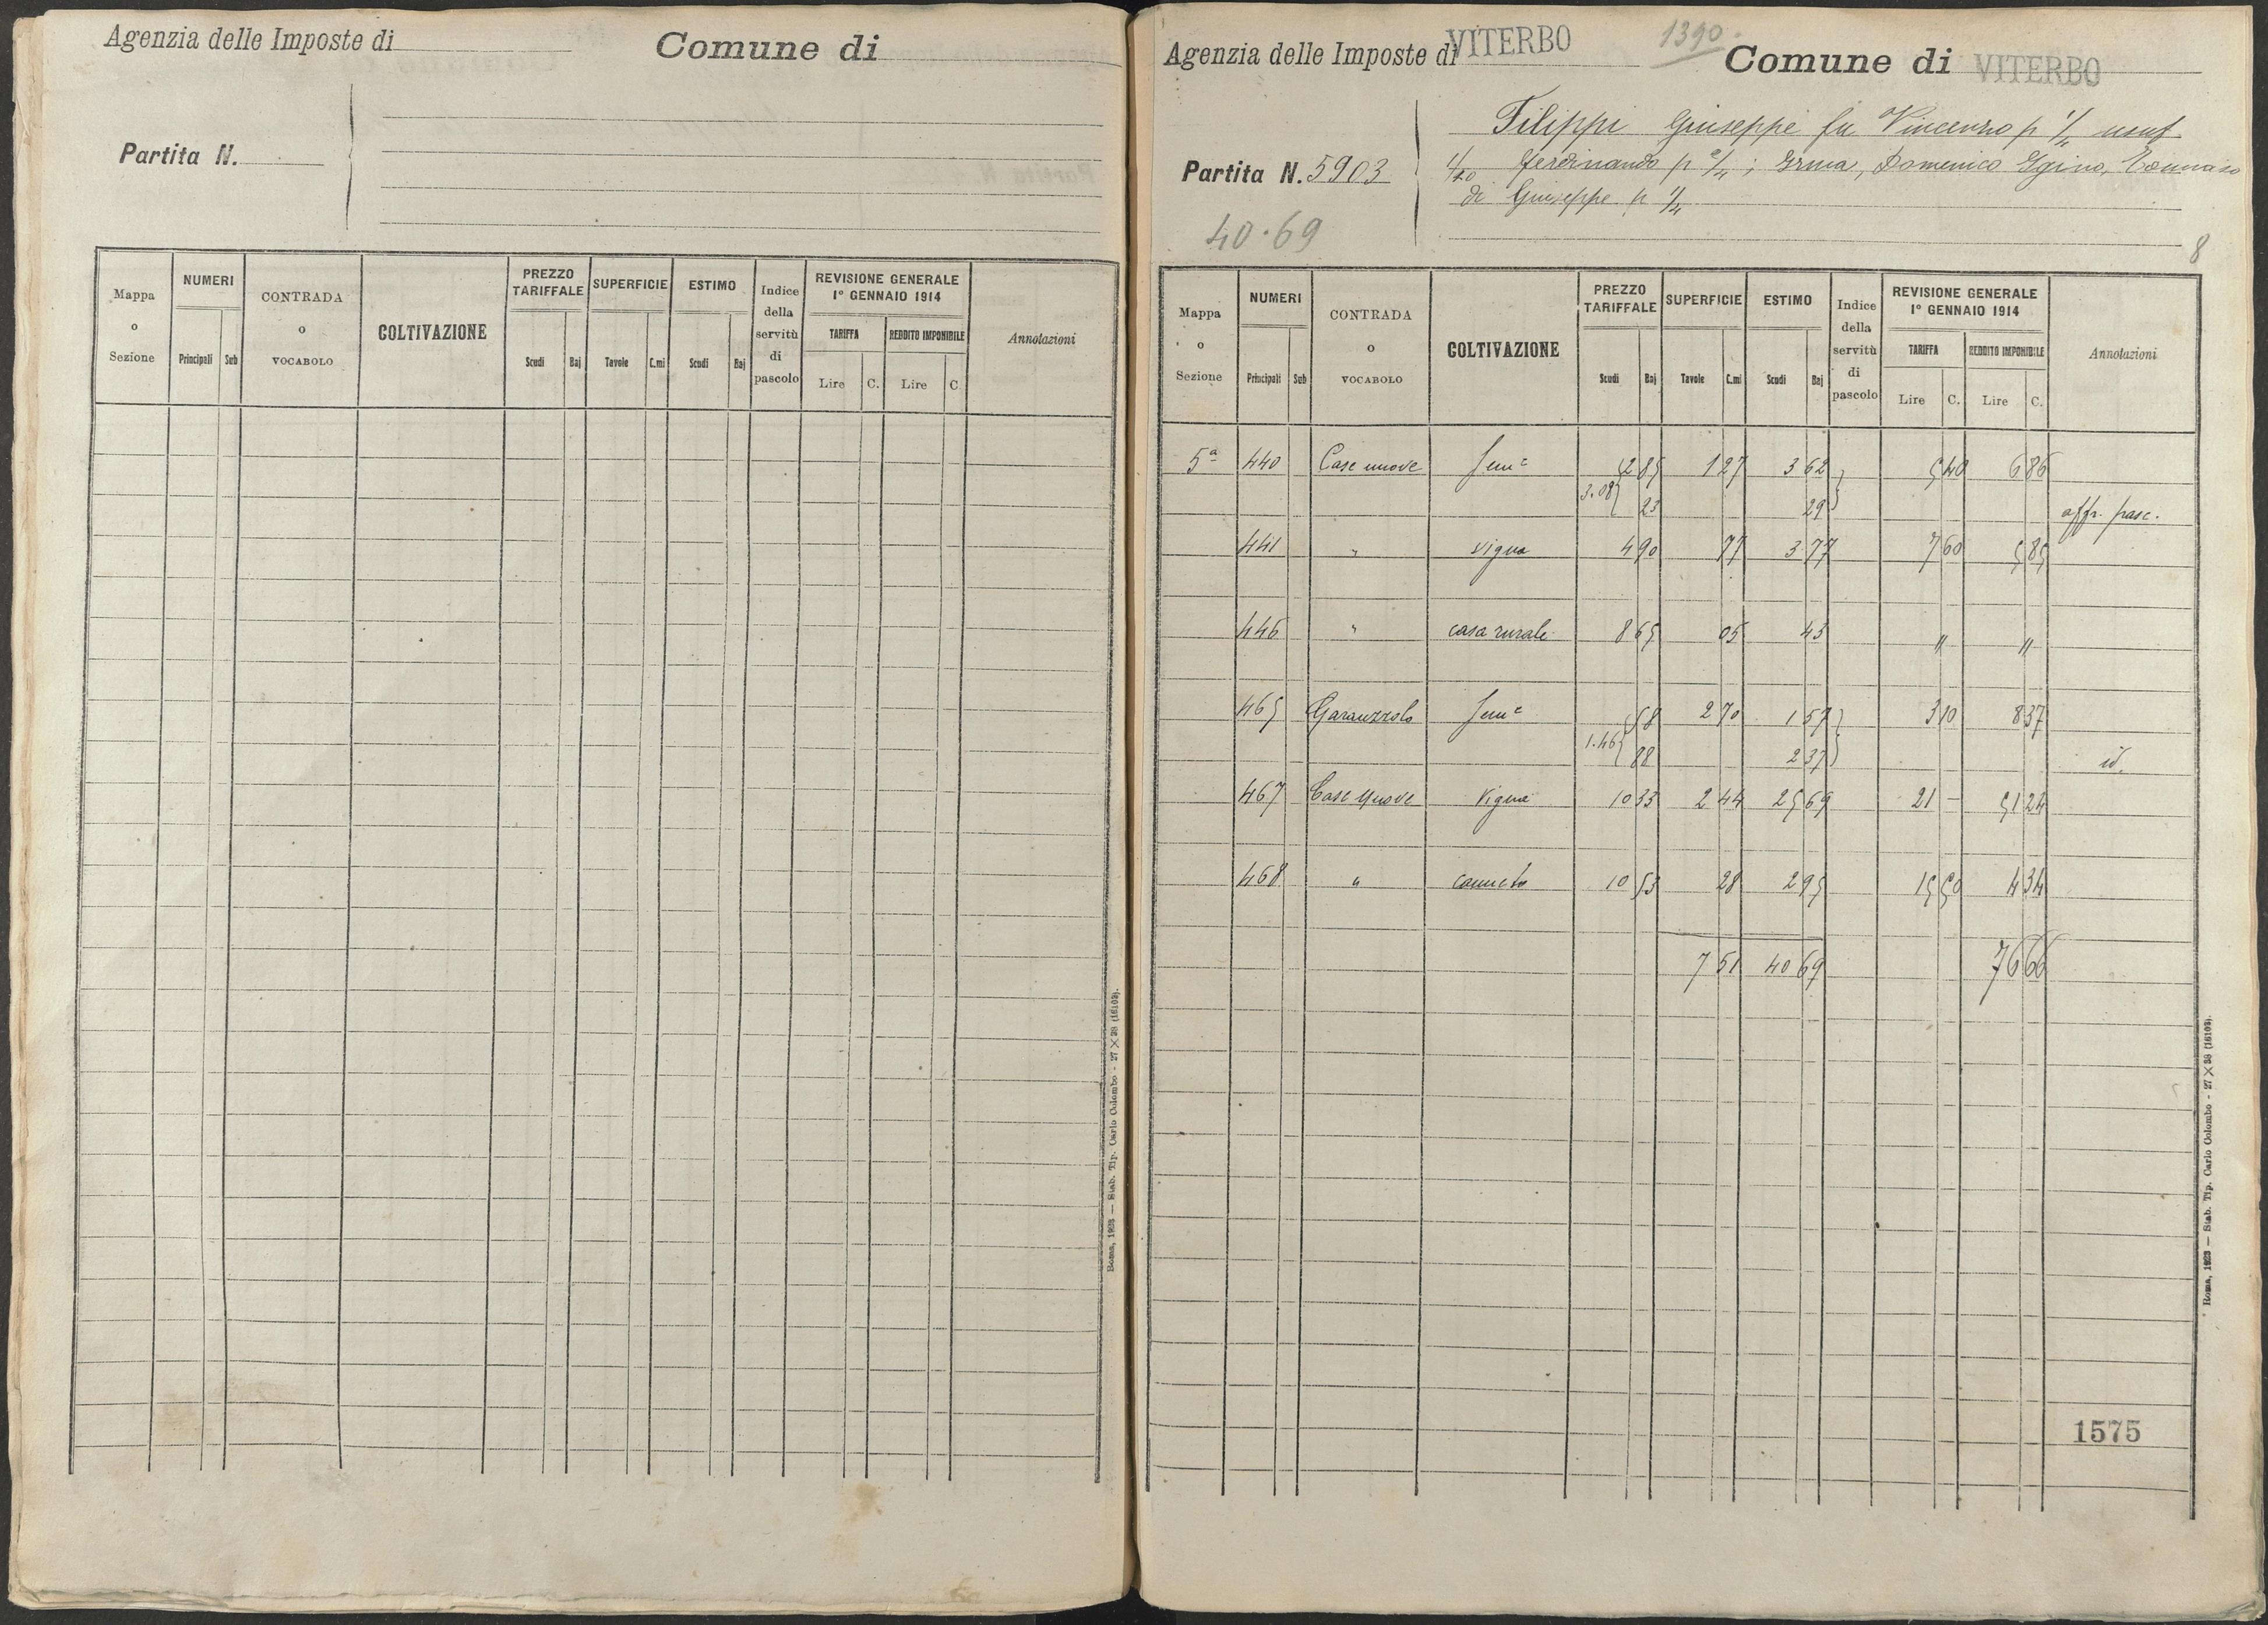 Agenzia delle Imposte di
Comune di
Partita N.
Mappa o Sezione
NUMERI
Principali Sub
CONTRADA o VOCABOLO
COLTIVAZIONE
PREZZO TARIFFALE
Scudi Baj
SUPERFICIE
Tavole C.mi
ESTIMO
Scudi Baj
Indice della servitù di pascolo
REVISIONE GENERALE
1° GENNAIO 1914
TARIFFA REDDITO IMPONIBILE
Lire C. Lire C.
Annotazioni
Roma, 1923 — Stab. Tip. Carlo Colombo - 27 × 38 (16103).
Agenzia delle Imposte di VITERBO
1390.
Comune di VITERBO
Partita N. 5903
40.69
Filippi Giuseppe fu Vincenzo p 1/4 usuf.
Ferdinando p 2/4; Irma, Domenico Igino, Tommaso
di Giuseppe p 1/4
8
Mappa o Sezione
NUMERI
Principali Sub
CONTRADA o VOCABOLO
COLTIVAZIONE
PREZZO TARIFFALE
Scudi Baj
SUPERFICIE
Tavole C.mi
ESTIMO
Scudi Baj
Indice della servitù di pascolo
REVISIONE GENERALE
1° GENNAIO 1914
TARIFFA REDDITO IMPONIBILE
Lire C. Lire C.
Annotazioni
5ª 440 Case nuove Semᵉ 2 85 1 27 3 62 5 40 6 86
3.08 23 29 affr. pasc.
441 " vigna 4 90 77 3 77 7 60 5 85
446 " casa rurale 8 65 05 43 " "
465 Garauzzolo Semᵉ 58 2 70 1 57 3 10 8 37
1.46 88 2 37 id.
467 Case Nuove Vigna 10 33 2 44 25 69 21 – 51 24
468 " canneto 10 53 28 2 95 15 50 4 34
7 51 40 69 76 66
1575
Roma, 1923 — Stab. Tip. Carlo Colombo - 27 × 38 (16103).